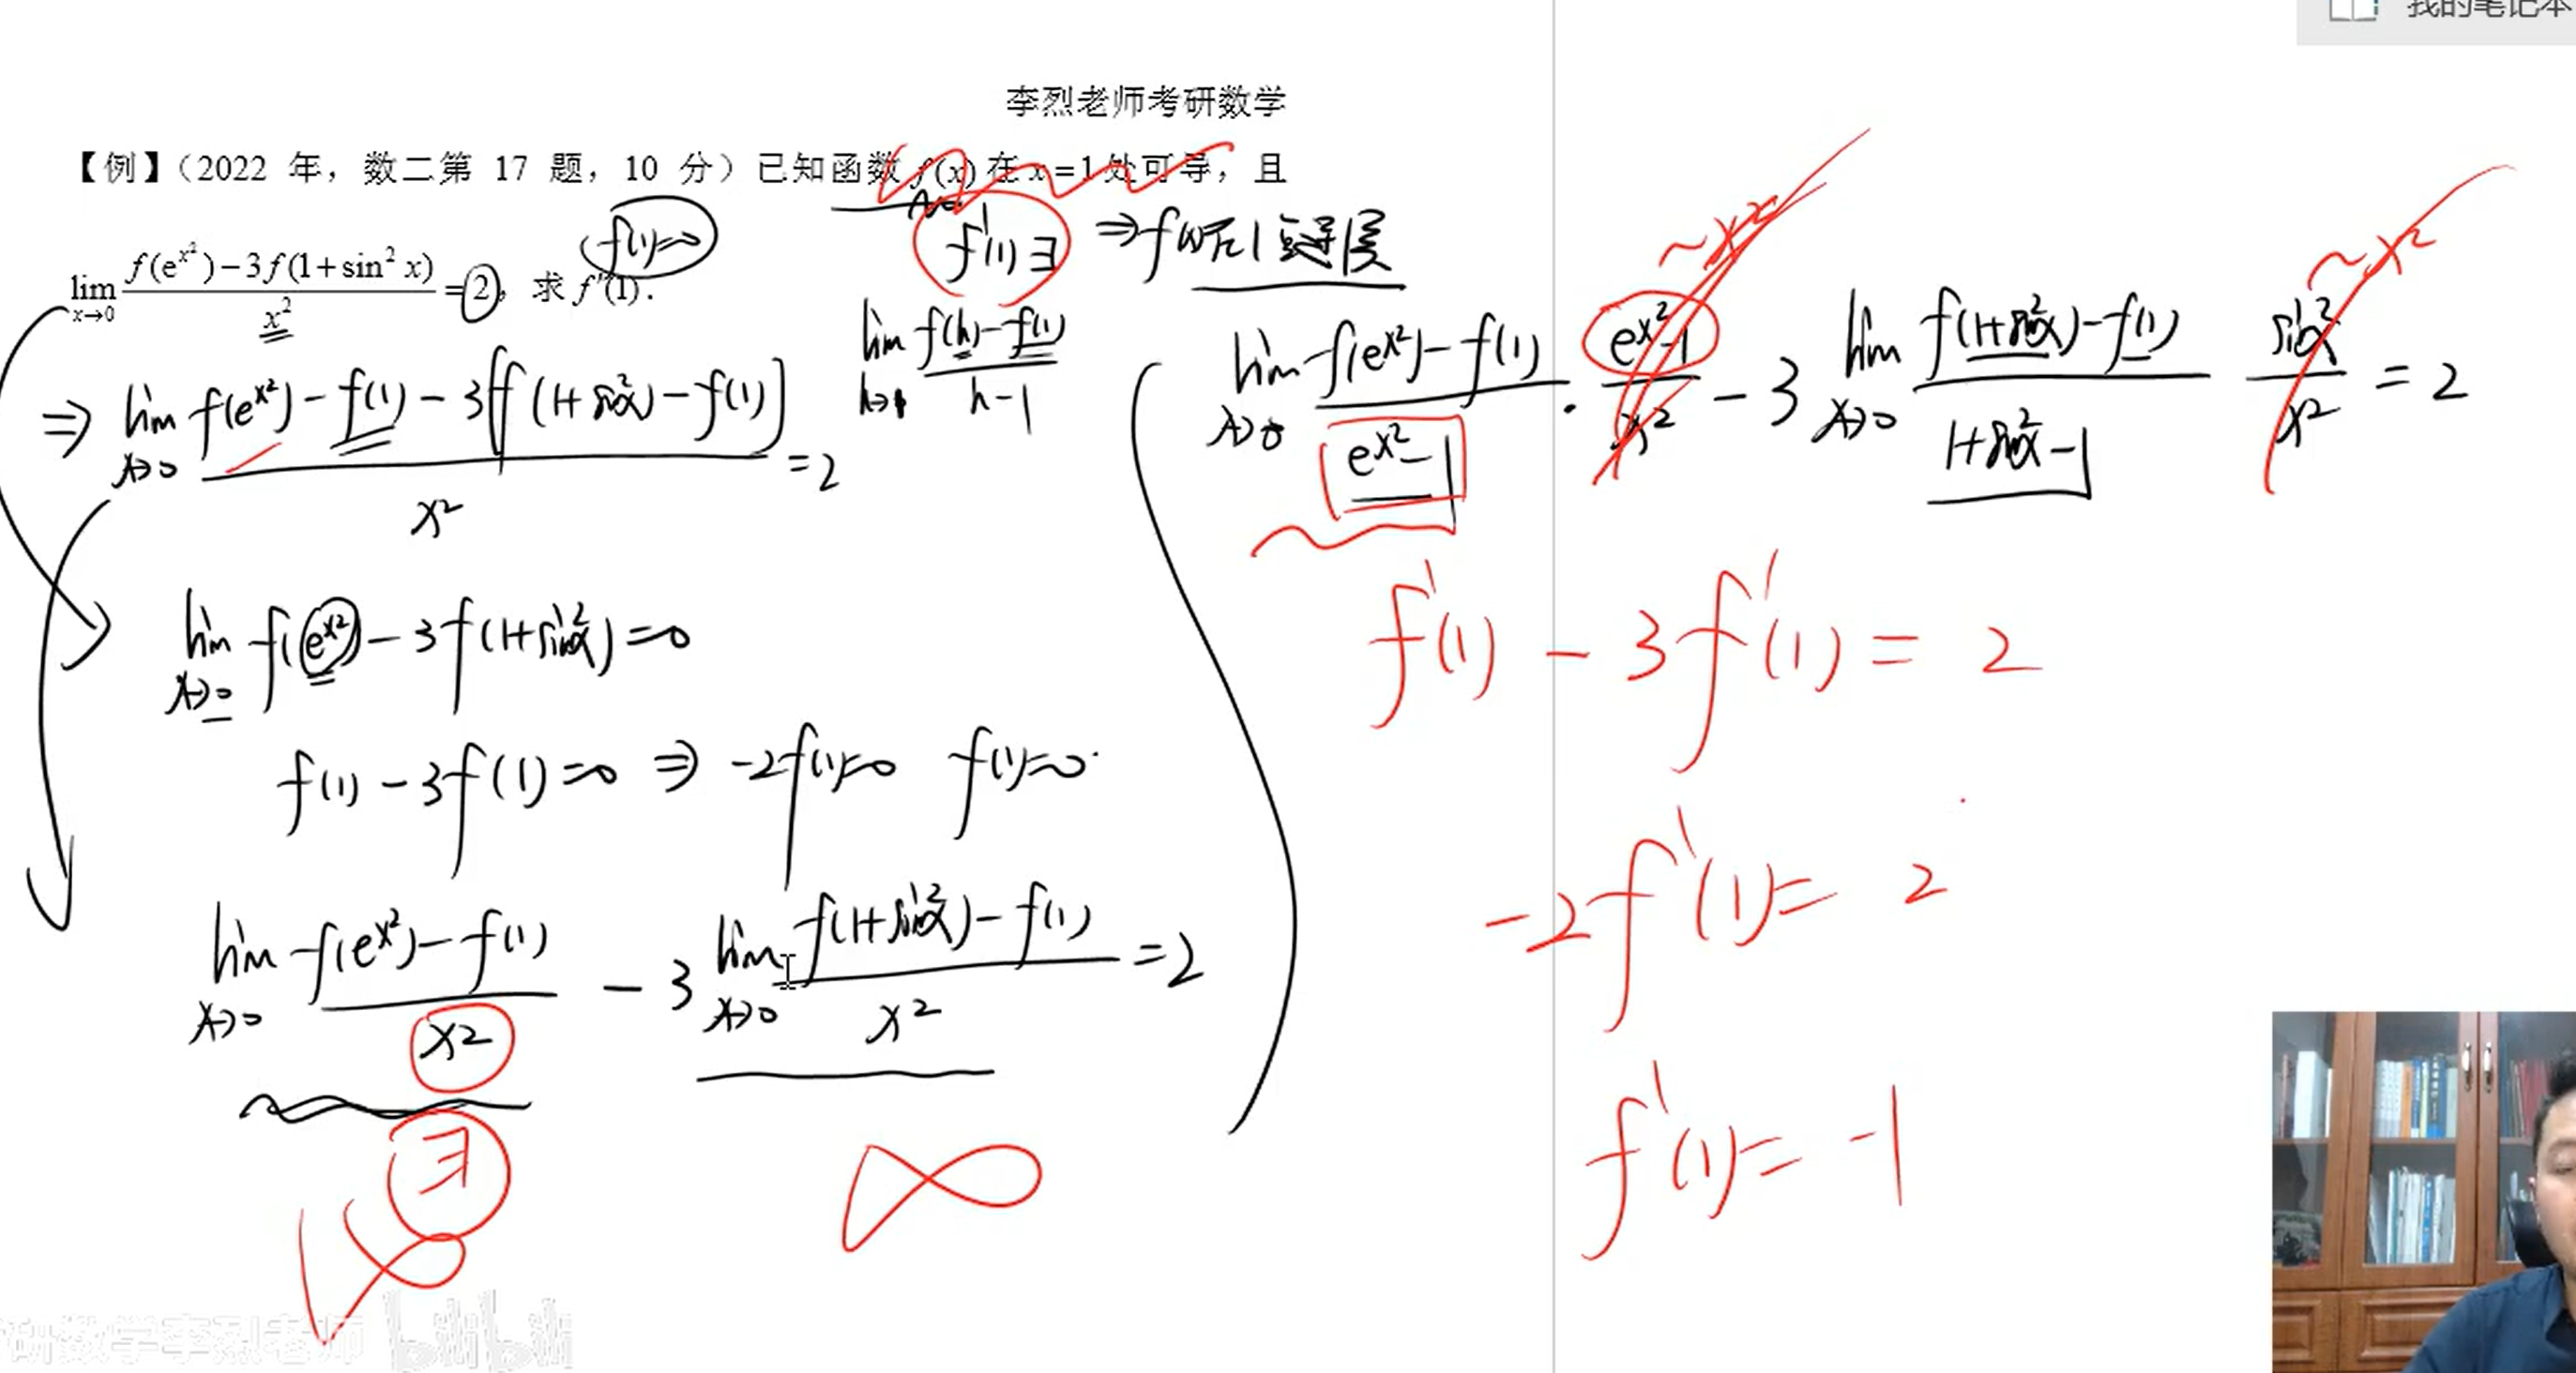 我的笔记本
李烈老师考研数学
【例】（2022 年，数二第 17 题，10 分）已知函数 f(x) 在 x=1 处可导，且
lim x→0 (f(e^{x²})−3f(1+sin² x))/x² = 2，求 f′(1).
f(1)=0
f′(1)∃ ⇒ f(x)在1连续
lim h→1 (f(h)−f(1))/(h−1)
⇒ lim x→0 (f(e^{x²})−f(1)−3[f(1+sin²x)−f(1)])/x² =2
lim x→0 f(e^{x²})−3f(1+sin²x)=0
f(1)−3f(1)=0 ⇒ −2f(1)=0 f(1)=0
lim x→0 (f(e^{x²})−f(1))/x² −3 lim x→0 (f(1+sin²x)−f(1))/x² =2
∃
∞
lim x→0 (f(e^{x²})−f(1))/(e^{x²}−1) · (e^{x²}−1)/x² −3 lim x→0 (f(1+sin²x)−f(1))/(1+sin²x−1) sin²x/x² =2
~x²
~x²
f′(1)−3f′(1)=2
−2f′(1)=2
f′(1)=−1
研数学李烈老师 bilibili